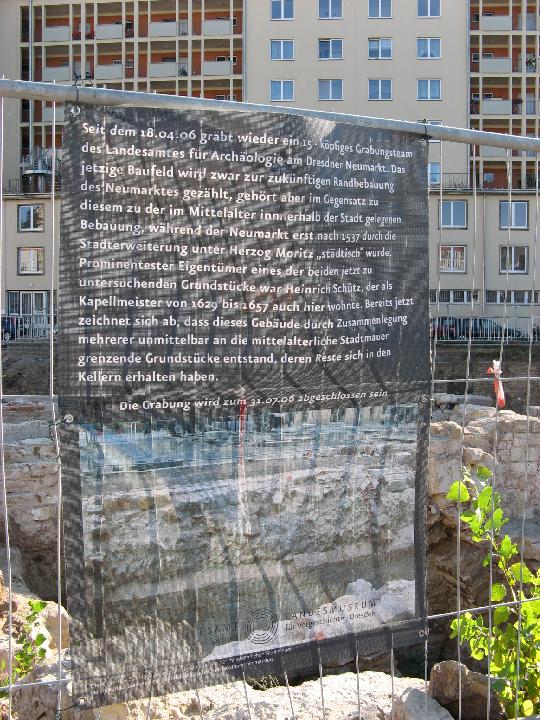 Seit dem 18.04.06 gräbt wieder ein 15-köpfiges Grabungsteam
des Landesamtes für Archäologie am Dresdner Neumarkt. Das
jetzige Baufeld wird zwar zur zukünftigen Randbebauung
des Neumarktes gezählt, gehört aber im Gegensatz zu
diesem zu der im Mittelalter innerhalb der Stadt gelegenen
Bebauung, während der Neumarkt erst nach 1537 durch die
Stadterweiterung unter Herzog Moritz „städtisch" wurde.
Prominentester Eigentümer eines der beiden jetzt zu
untersuchenden Grundstücke war Heinrich Schütz, der als
Kapellmeister von 1629 bis 1657 auch hier wohnte. Bereits jetzt
zeichnet sich ab, dass dieses Gebäude durch Zusammenlegung
mehrerer unmittelbar an die mittelalterliche Stadtmauer
grenzende Grundstücke entstand, deren Reste sich in den
Kellern erhalten haben.
Die Grabung wird zum 31.07.06 abgeschlossen sein
LANDESMUSEUM
für Vorgeschichte Dresden